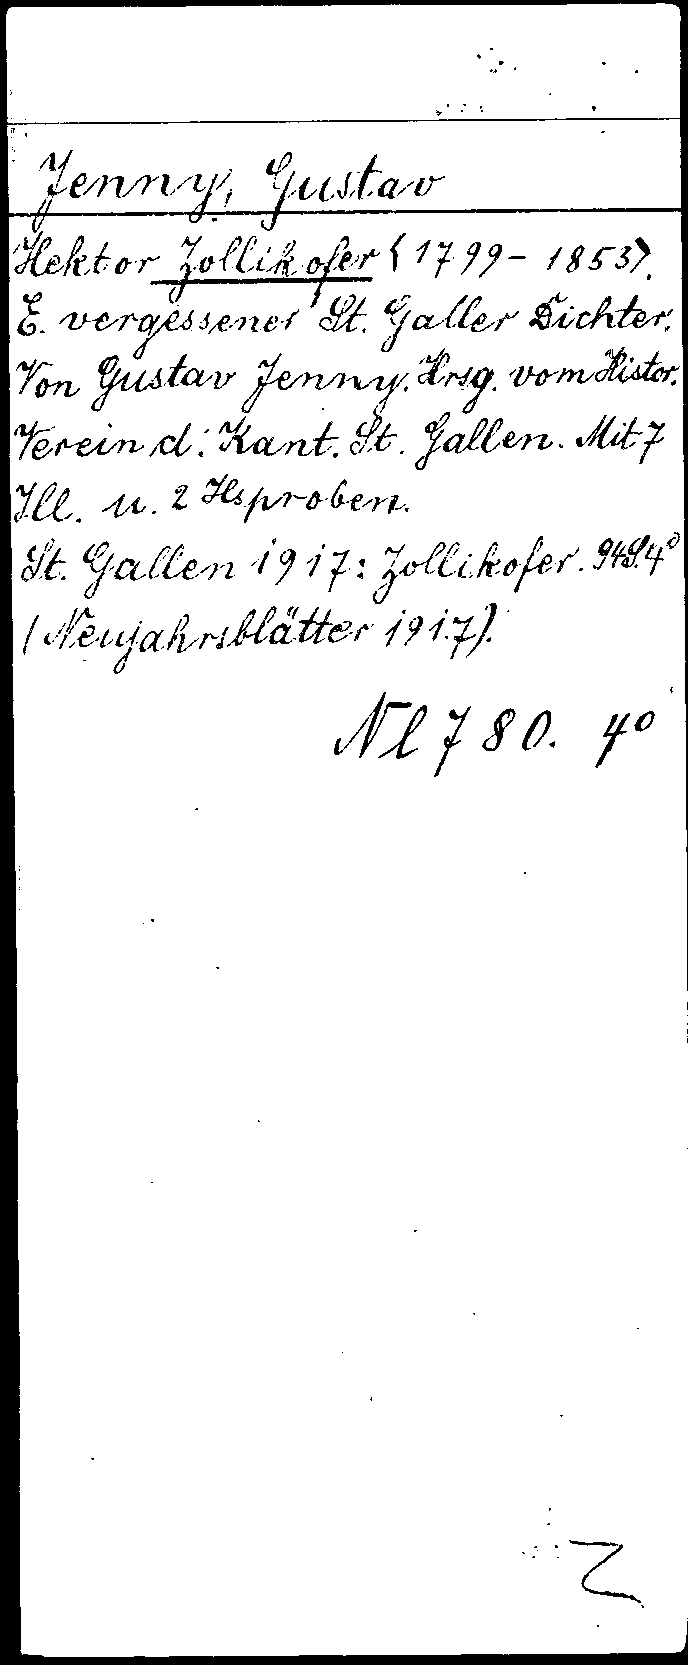 Jenny, Gustav
Hektor Zollikofer <1799 - 1853>.
E. vergessener St. Galler Dichter.
Von Gustav Jenny. Hrsg. vom Histor.
Verein d. Kant. St. Gallen. Mit 7
Ill. u. 2 Hsproben.
St. Gallen 1917: Zollikofer. 94 S. 4°
(Neujahrsblätter 1917).
Nl 780. 4°